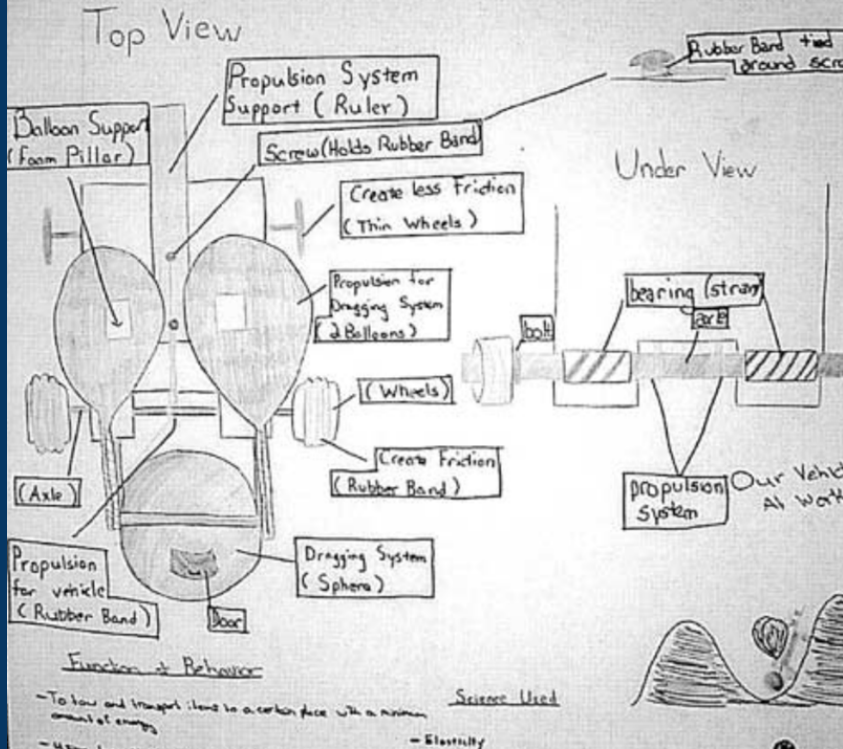 Top View
Rubber Band tied
around
Propulsion System
Support (Ruler)
Balloon Support
(Foam Pillar)
Screw (Holds Rubber Band)
Under View
Create less Friction
(Thin Wheels)
Propulsion for
Dragging System
(2 Balloons)
bearing (straw)
axle
bolt
(Wheels)
Create Friction
(Rubber Band)
(Axle)
propulsion
system
Our
At Work
Propulsion
for vehicle
(Rubber Band)
Dragging System
(Sphere)
Door
Function & Behavior
Science Used
- To tow and transport items to a certain place with a minimum
amount of energy
- Elasticity